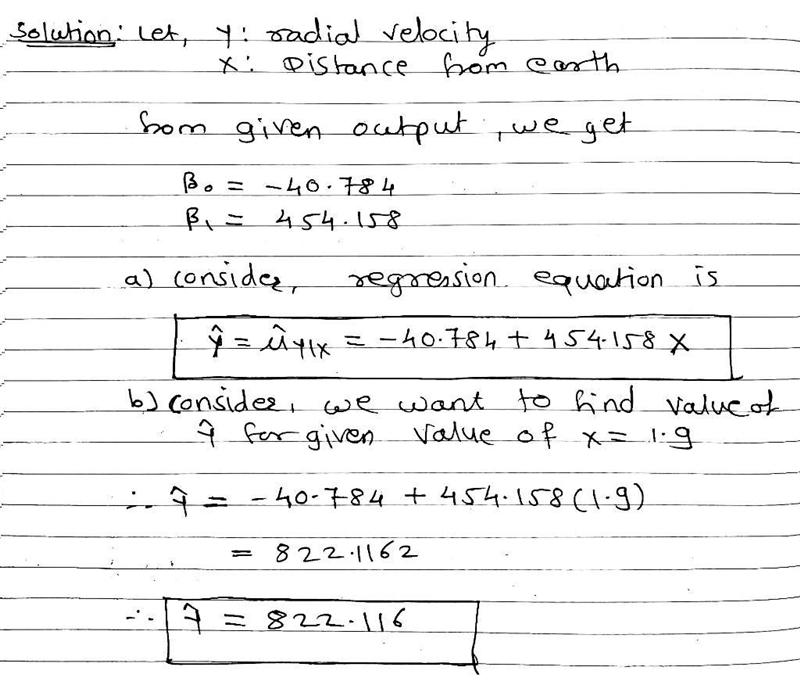 Solution: Let, Y: radial velocity
X: Distance from earth
from given output, we get
β₀ = -40.784
β₁ = 454.158
a) consider, regression equation is
ŷ = μ̂y|x = -40.784 + 454.158 X
b) consider, we want to find value of
ŷ for given value of x = 1.9
∴ ŷ = -40.784 + 454.158 (1.9)
= 822.1162
∴ ŷ = 822.116